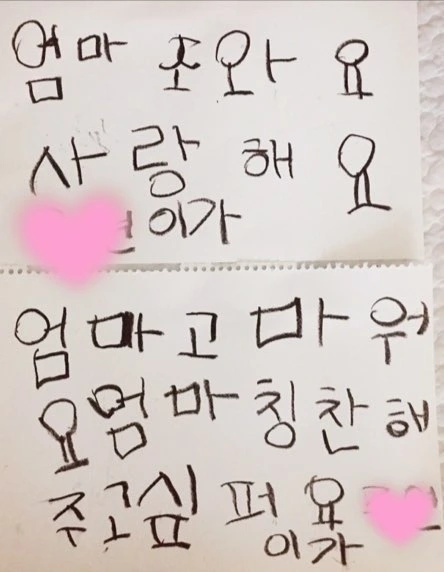 엄마 조와 요
사랑 해 요
이가
엄마고마워
요엄마칭찬해
주고십퍼요
이가